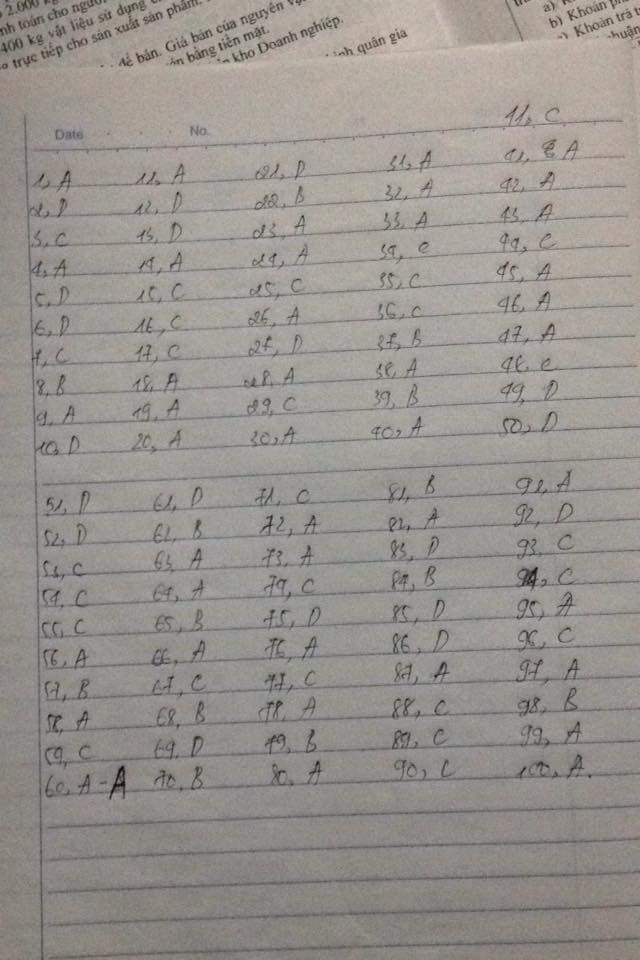 2.000 kg
nh toán cho người
400 kg vật liệu sử dụng c
trực tiếp cho sản xuất sản phẩm.
để bán. Giá bán của nguyên vậ
bán bằng tiền mặt.
kho Doanh nghiệp.
bình quân gia
a) K
b) Khoán ph
c) Khoán trả t
nhuận
11, C
Date No.
1, A 11, A 21, D 31, A 41, A
2, D 12, D 22, B 32, A 42, A
3, C 13, D 23, A 33, A 43, A
4, A 14, A 24, A 34, C 44, C
5, D 15, C 25, C 35, C 45, A
6, D 16, C 26, A 36, C 46, A
7, C 17, C 27, D 37, B 47, A
8, B 18, A 28, A 38, A 48, C
9, A 19, A 29, C 39, B 49, D
10, D 20, A 30, A 40, A 50, D
51, D 61, D 71, C 81, B 91, A
52, D 62, B 72, A 82, A 92, D
53, C 63, A 73, A 83, D 93, C
54, C 64, A 74, C 84, B 94, C
55, C 65, B 75, D 85, D 95, A
56, A 66, A 76, A 86, D 96, C
57, B 67, C 77, C 87, A 97, A
58, A 68, B 78, A 88, C 98, B
59, C 69, D 79, B 89, C 99, A
60, A - A 70, B 80, A 90, C 100, A.